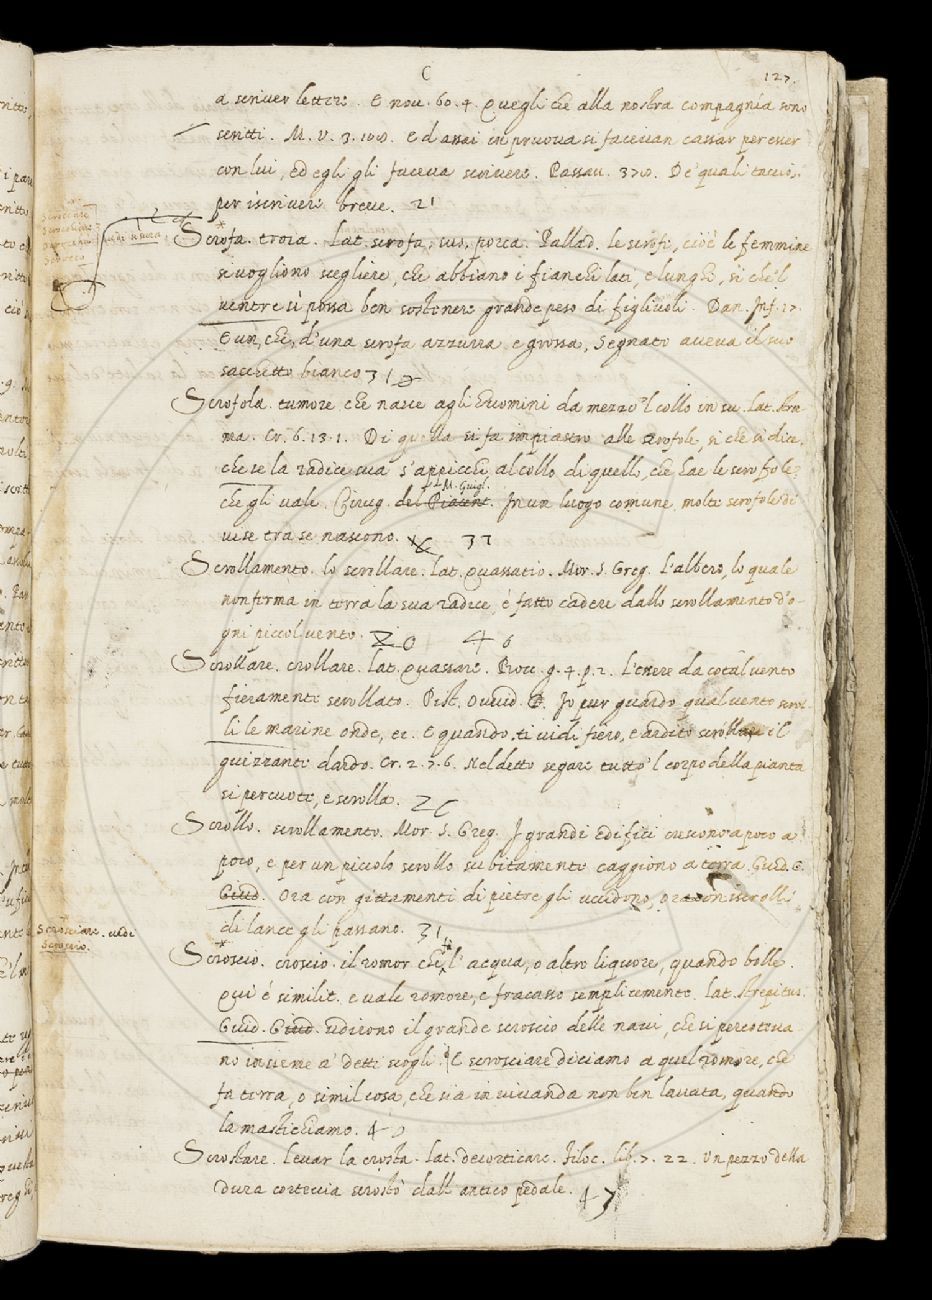 C
127.
a scriver lettere. E nov. 60. 4. Quegli che alla nostra compagnia sono
scritti. M. V. 3. 100. E d'assai in pruova si facevan cassar per esser
con lui, ed egli gli faceva scrivere. Passav. 370. De' quali taccio,
per iscrivere breve. 21
Scrofa. troia. Lat. scrofa, sus, porca. Pallad. le scrofe, cioè le femmine
si vogliono scegliere, che abbiano i fianchi lati, e lunghi, si che 'l
ventre si possa ben sostenere grande peso di figliuoli. Dan. Inf. 17.
E un, che, d'una scrofa azzurra e grossa, Segnato aveva il suo
sacchetto bianco 31
Scrofola. tumore che nasce agli huomini da mezzo 'l collo in su. Lat. stru
ma. Cr. 6. 13. 1. Di quella si fa impiastro alle scrofole, si che si dice,
che se la radice sua s'appicchi al collo di quello, che hae le scrofole,
che gli vale. Cirug. del M. Gugl. In un luogo comune molte scrofole di
vise tra se nascono. 37
Scrollamento. lo scrollare. Lat. quassatio. Mor. S. Greg. L'albero, lo quale
non ferma in terra la sua radice, è fatto cadere dallo scrollamento d'o-
gni piccol vento. 20 46
Scrollare. crollare. Lat. quassare. Bocc. g. 4. p. 2. L'essere da cotal vento
fieramente scrollato. Pist. Ovvid. Io pur guardo qual vento scrol-
li le marine onde, ec. E quando ti vidi fiero, e ardito scrollare il
guizzante dardo. Cr. 2. 7. 6. Nel detto segare tutto 'l corpo della pianta
si percuote, e scrolla. 26
Scrollo. scrollamento. Mor. S. Greg. I grandi edifici crescono a poco a
poco, e per un piccolo scrollo subitamente caggiono a terra. Guid. G.
Giud. Ora con gittamenti di pietre gli uccidono, ora con iscrolli
di lance gli passano. 31
Scrosciare. vedi
Scroscio.
Scroscio. croscio. il romor che fa l'acqua, o altro liquore, quando bolle.
Qui è similit. e vale romore, e fracasso semplicemente. Lat. strepitus.
Guid. Giud. udirono il grande scroscio delle navi, che si percoteva-
no insieme a' detti scogli. E scrosciare diciamo a quel romore, che
fa terra, o simil cosa, che sia in vivanda non ben lavata, quando
la mastichiamo. 40
Scrostare. Levar la crosta. Lat. decorticare. Filoc. lib. 7. 22. Un pezzo della
dura corteccia scrostò dall'antico pedale. 47